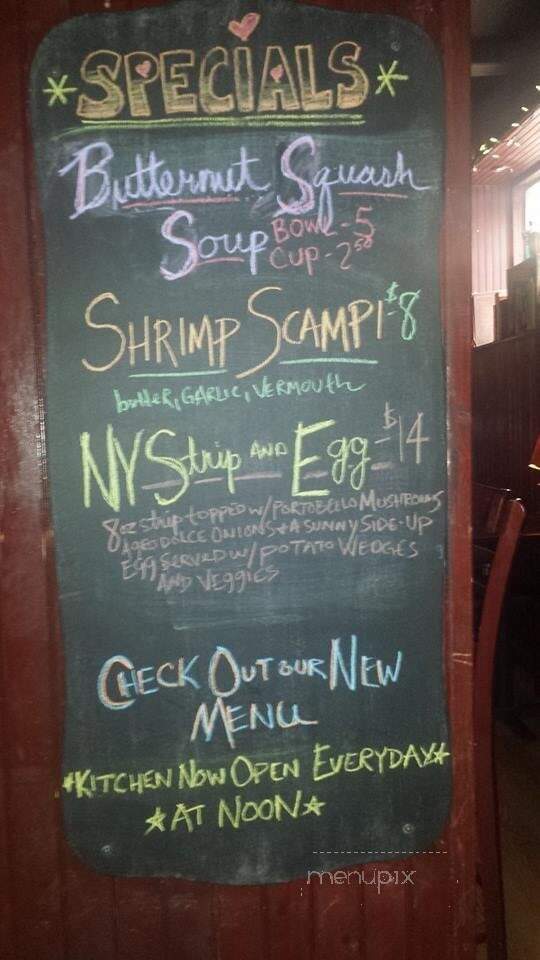 *SPECIALS*
Butternut Squash
Soup BOWL - 5
CUP - 2⁵⁰
SHRIMP SCAMPI - $8
butter, GARLIC, VERMOUTH
NY Strip AND Egg - $14
8oz strip topped w/ PORTOBELLO MUSHROOMS
AGED DOLCE ONIONS + A SUNNY SIDE-UP
EGG SERVED w/ POTATO WEDGES
AND VEGGIES
CHECK OUT OUR NEW
MENU
*KITCHEN NOW OPEN EVERYDAY*
*AT NOON*
menupix